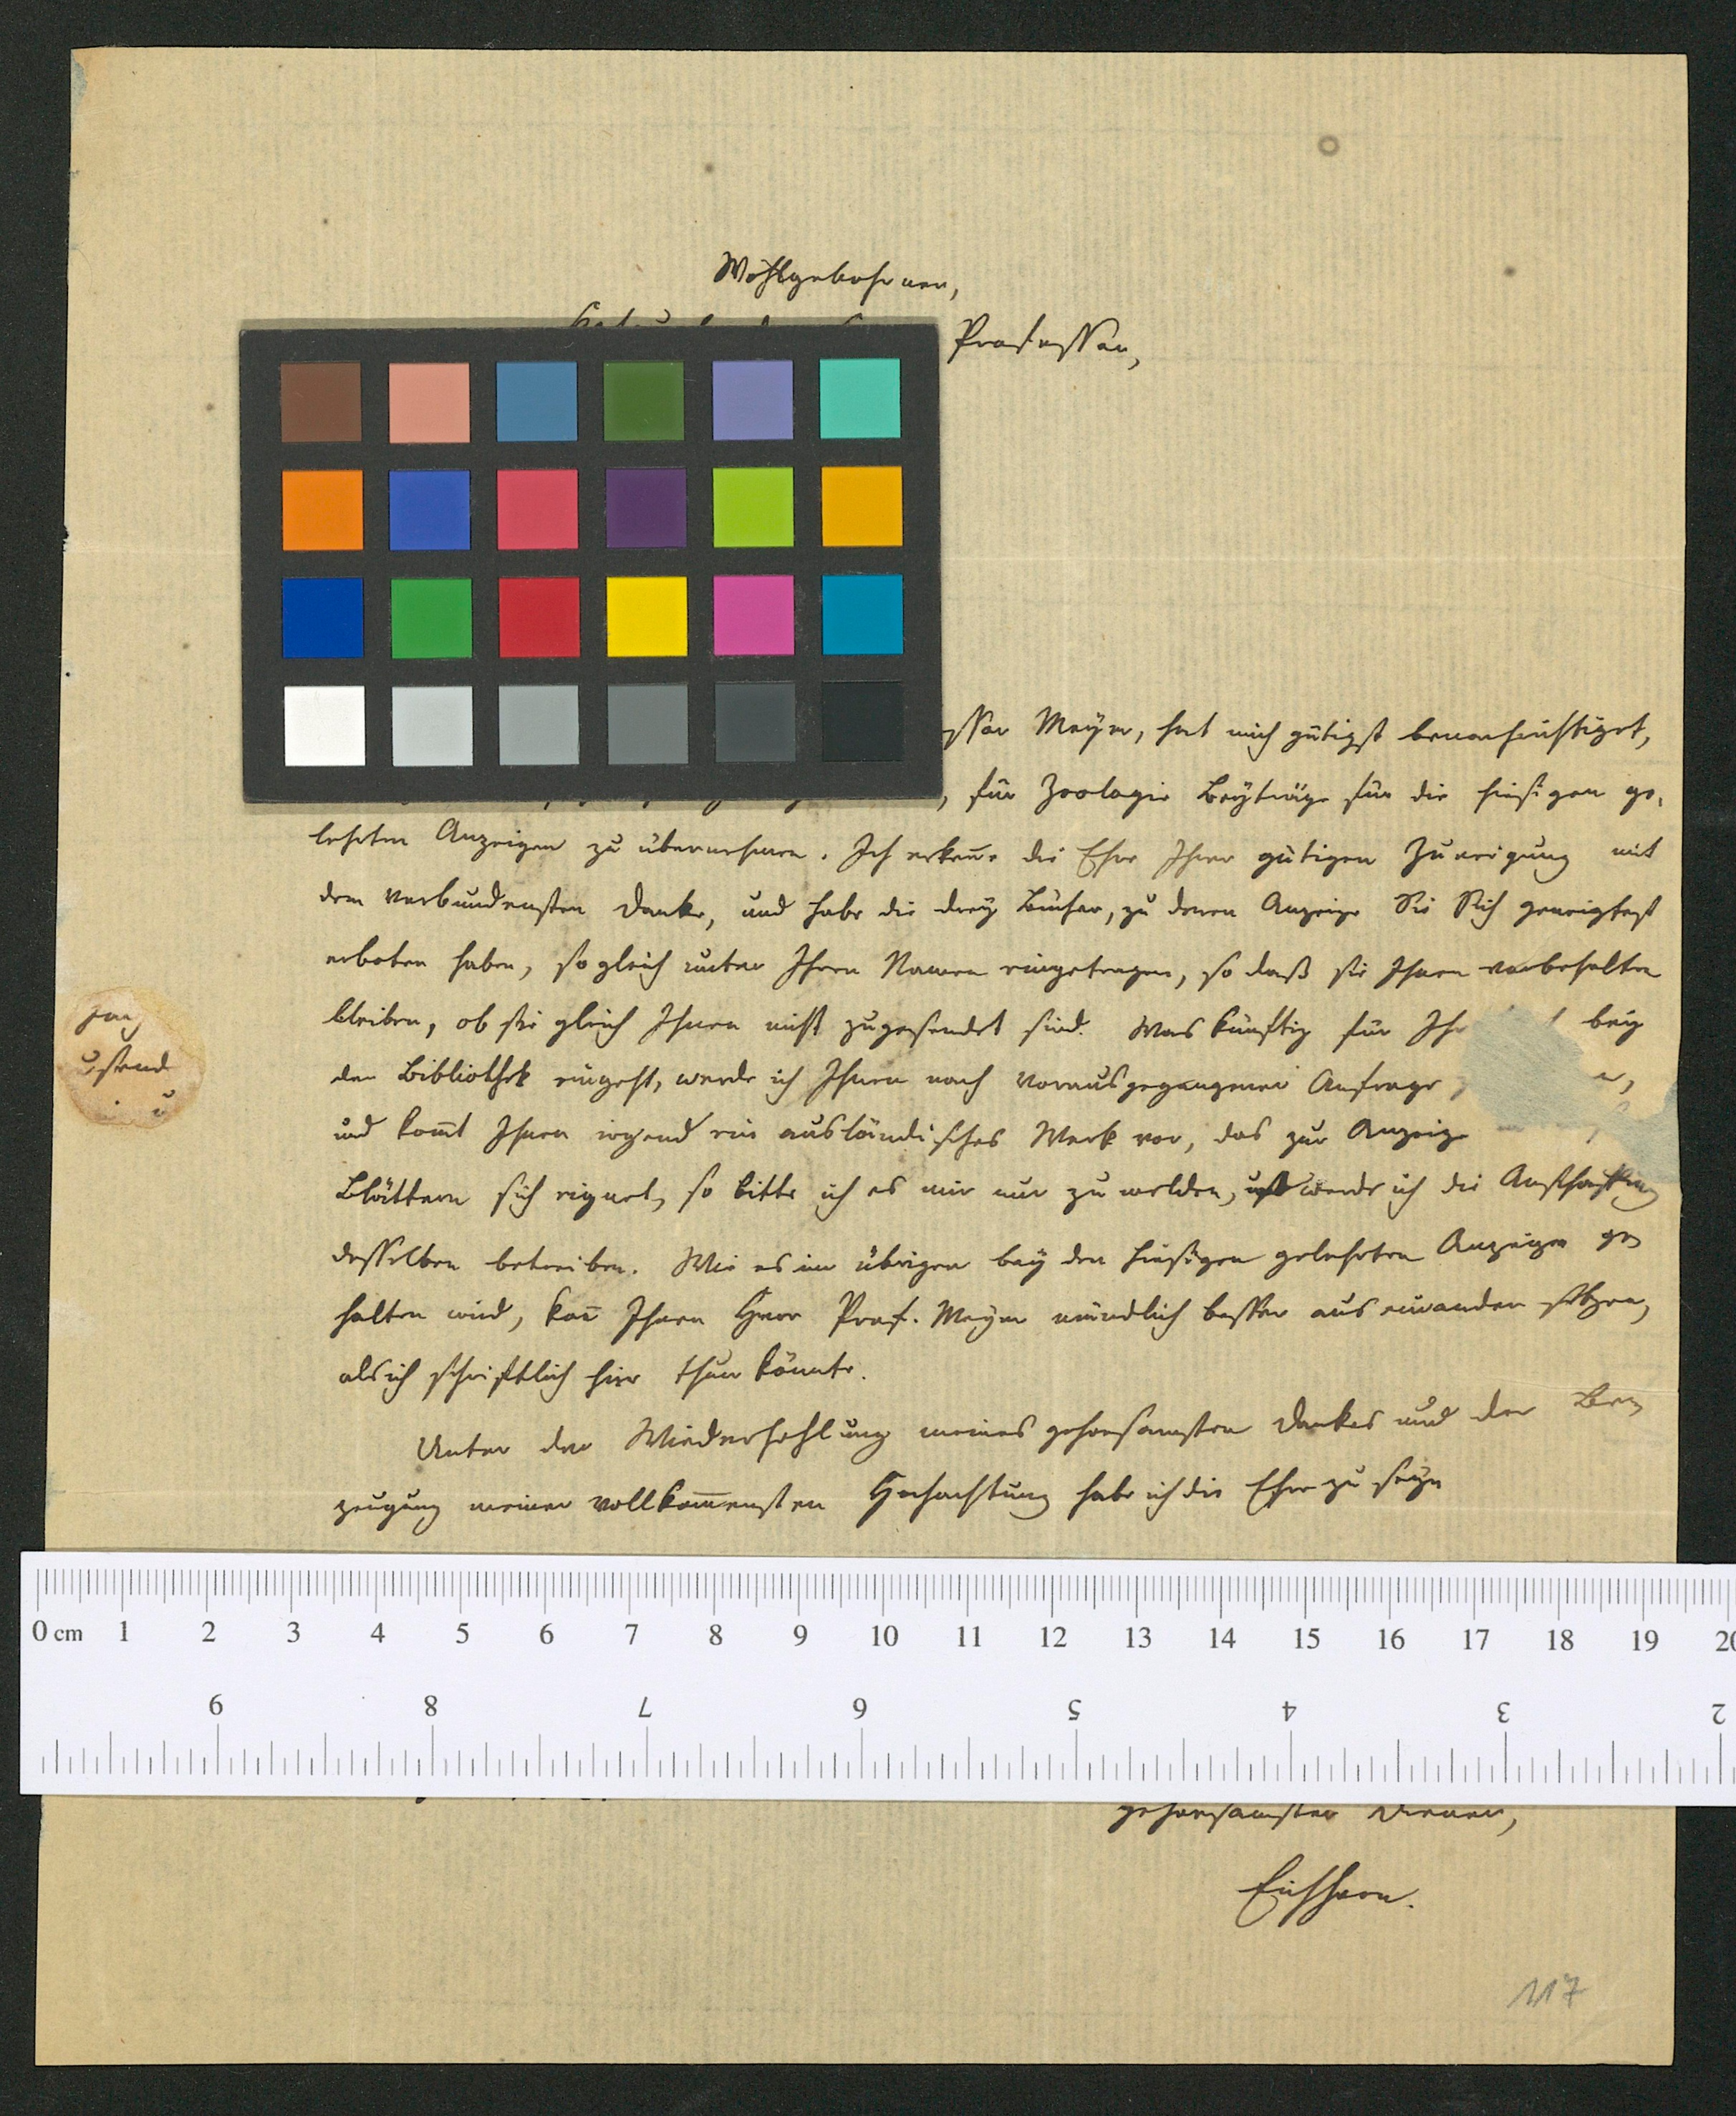 Wohlgebohrner,
Professor,
Meyer, hat mich gütigst benachrichtigt,
für Zoologie Beyträge für die hiesigen ge-
lehrten Anzeigen zu übernehmen. Ich erkeñe die Ehre Ihrer gütigen Zuneigung mit
dem verbundensten Danke, und habe die drey Bücher, zu deren Anzeige Sie Sich geneigtest
erboten haben, sogleich unter Ihrem Namen eingetragen, so daß sie Ihnen vorbehalten
bleiben, ob sie gleich Ihnen nicht zugesendet sind. Was künftig für bey
der Bibliothek eingeht, werde ich Ihnen nach vorausgegangener Anfrage
und kom̃t Ihnen irgend ein ausländisches Werk vor, das zur Anzeige
Blättern sich eignet, so bitte ich es mir nur zu melden, werde ich die Anschaffung
desselben betreiben. Wie es im übrigen bey den hiesigen gelehrten Anzeigen ge-
halten wird, kañ Ihnen Herr Prof. Meyer mündlich besser aus einander setzen,
als ich schriftlich hier thun könnte.
Unter der Wiederhohlung meines gehorsamsten Dankes und der Be-
zeugung meiner vollkom̃ensten Hochachtung habe ich die Ehre zu seyn
0 cm 1 2 3 4 5 6 7 8 9 10 11 12 13 14 15 16 17 18 19 20
9 8 7 6 5 4 3 2
gehorsamster Diener,
Eichhorn.
117